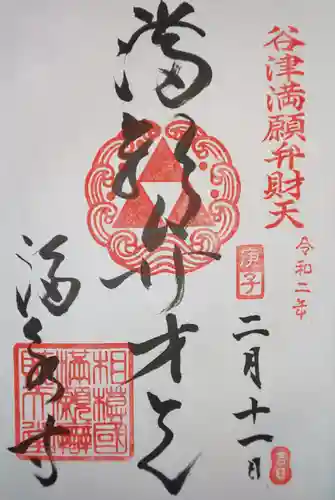 谷津満願弁財天
令和二年
庚子
二月十一日
満願弁才天
福泉寺
相模国
満願辨
財天堂